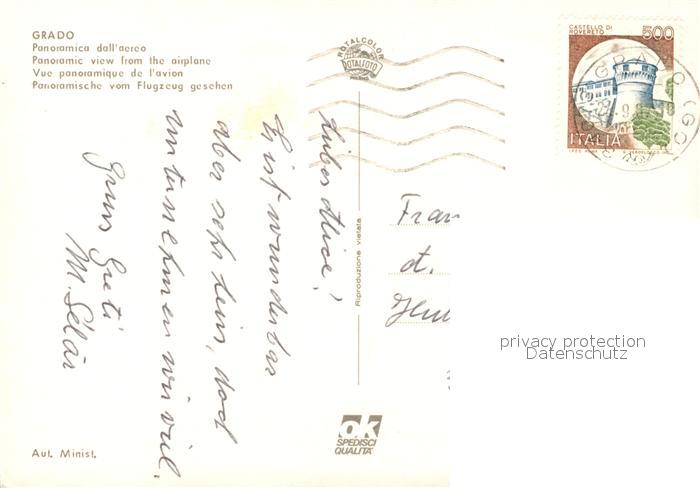 GRADO
Panoramica dall'aereo
Panoramic view from the airplane
Vue panoramique de l'avion
Panoramische vom Flugzeug gesehen
ROTALCOLOR
ROTALFOTO
CASTELLO DI
ROVERETO
500
ITALIA
GRADO (GO)
Liebes
Es ist wunderbar
aber sehr heiss, doch
unternehmen wir viel.
Gruss Greti
M.
Riproduzione vietata
Frau
privacy protection
Datenschutz
ok
SPEDISCI
QUALITÀ
Aut. Minist.